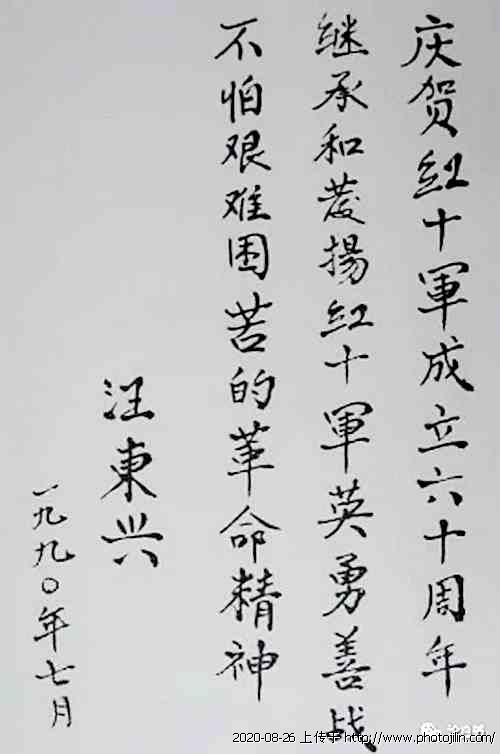 庆贺红十軍成立六十周年
继承和發揚红十軍英勇善战
不怕艰难困苦的革命精神
汪東兴
一九九〇年七月
2020-08-26 上传于http://www.photojilin.com/